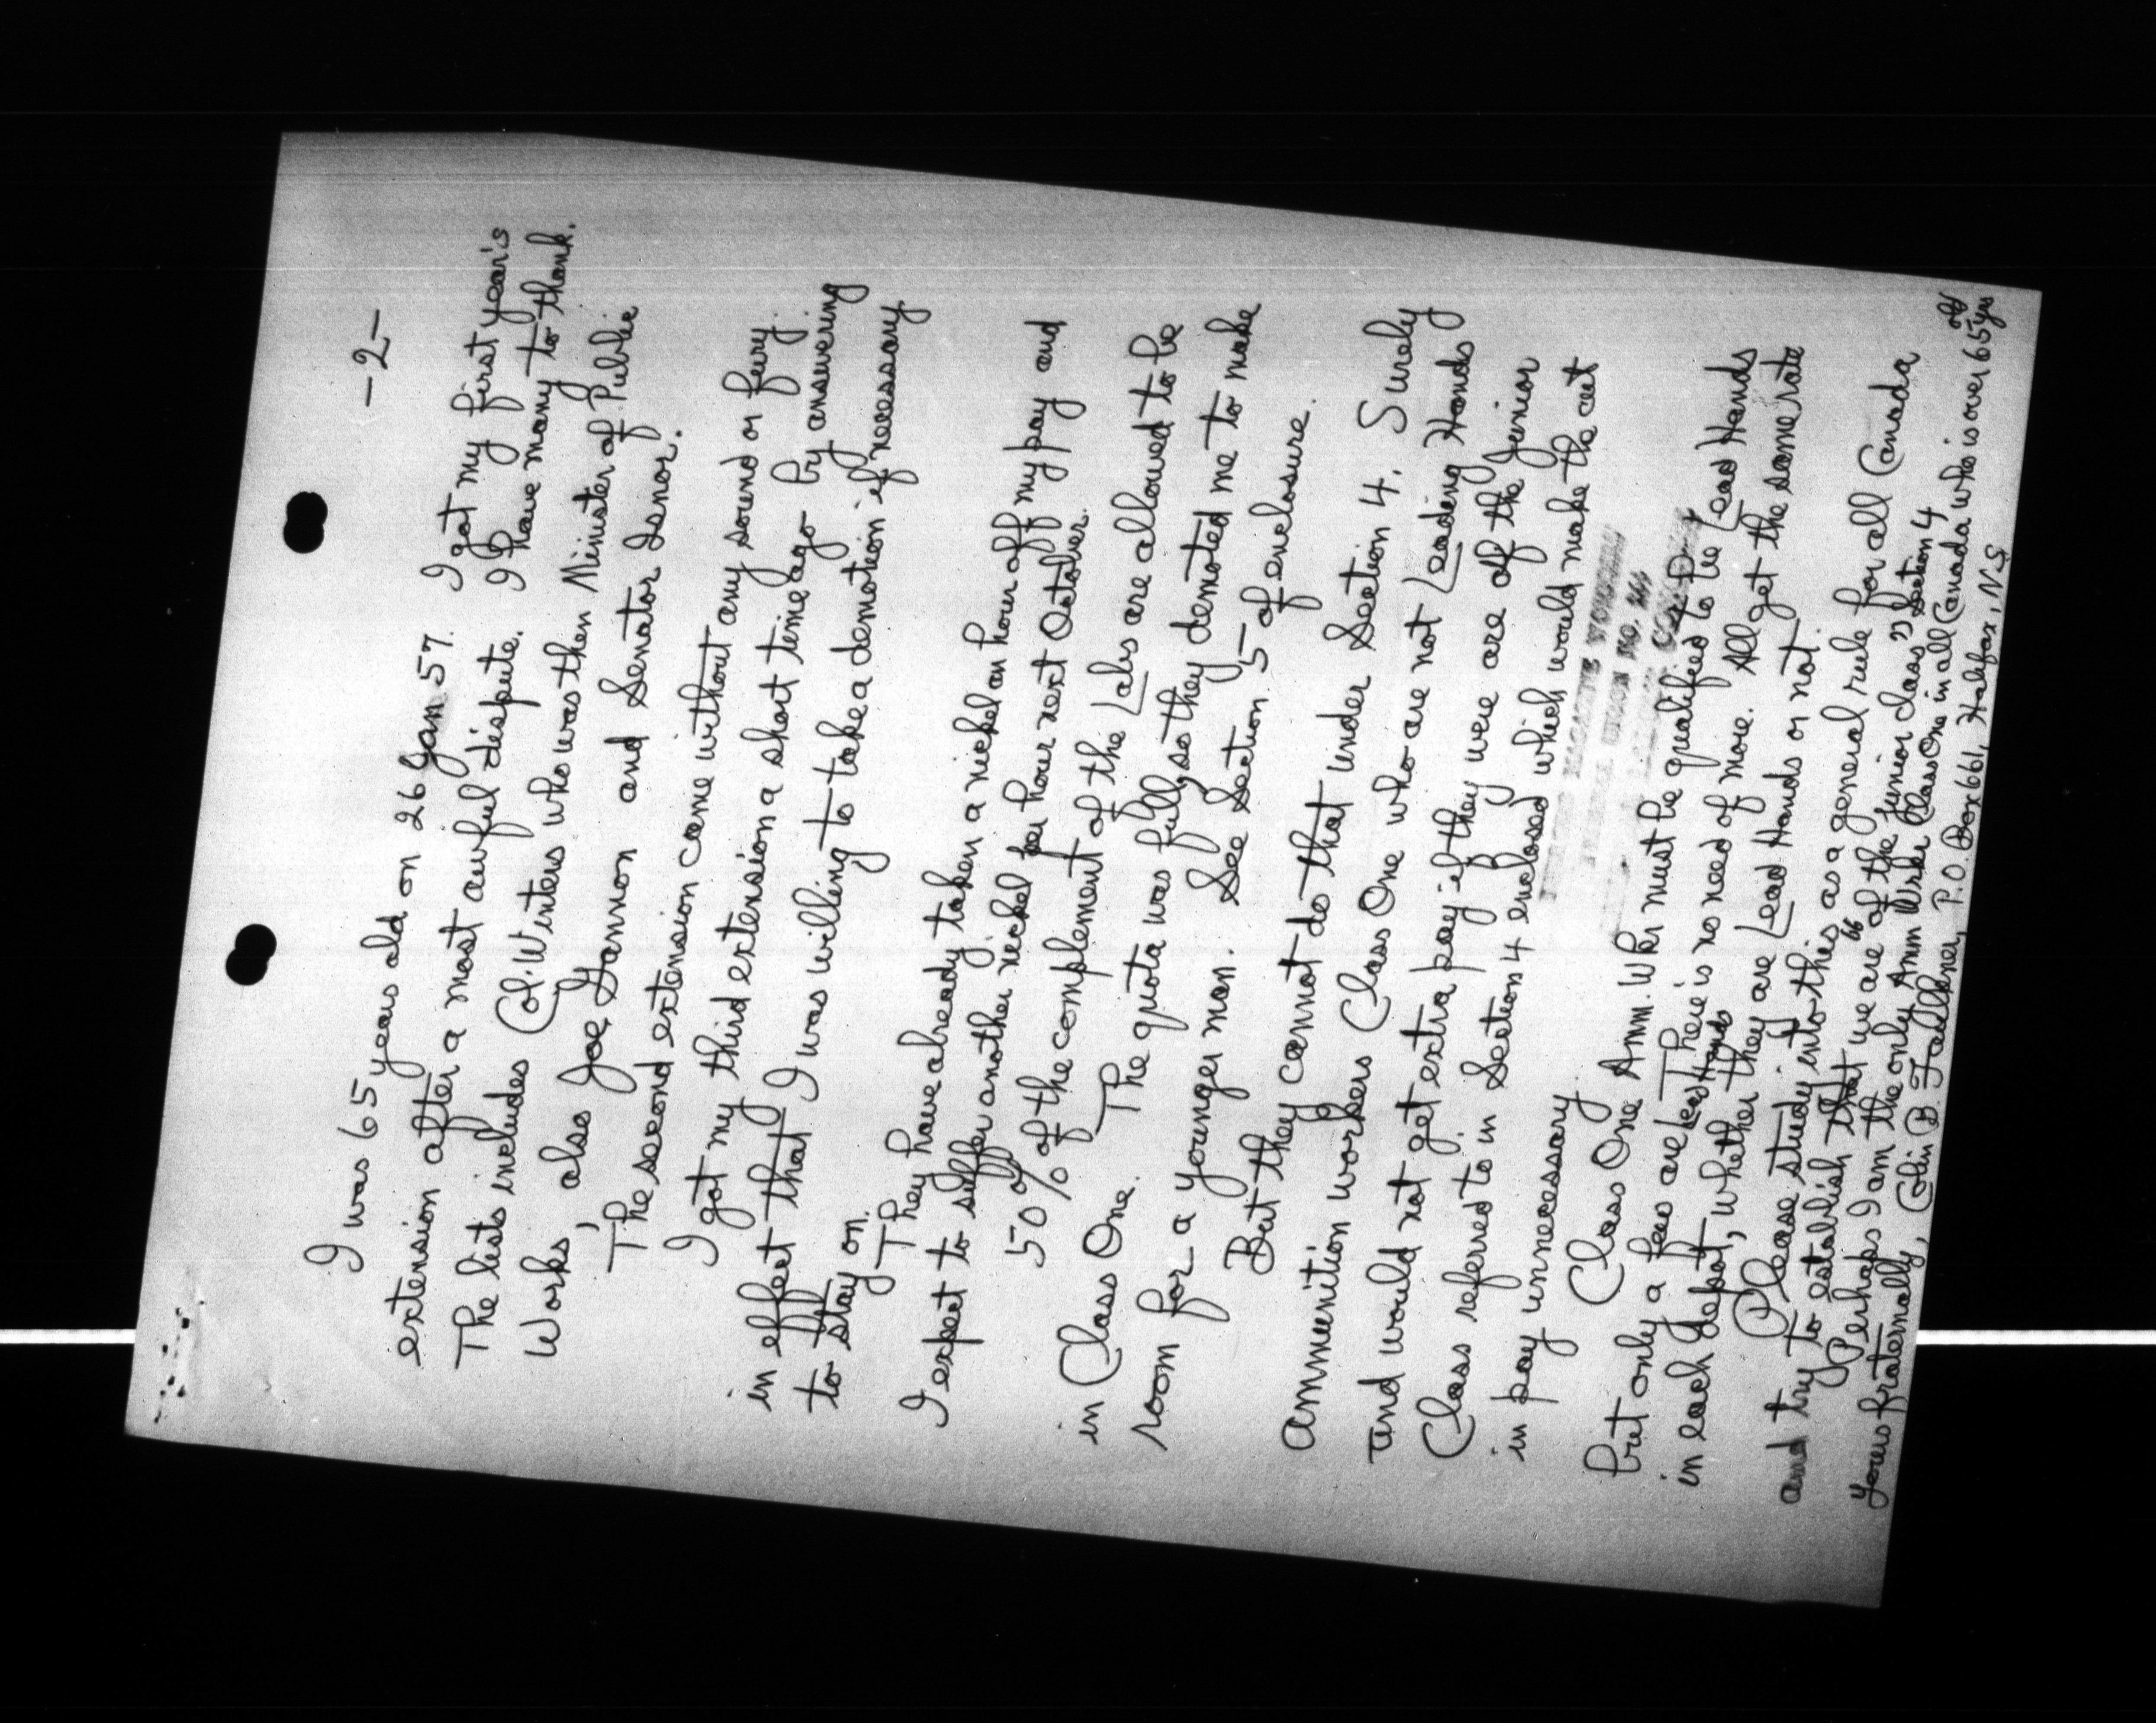 -2-
I was 65 years old on 26 Jan 57. I got my first year's
extension after a most awful dispute. I have many to thank.
The lists includes Col. Winters who was then Minister of Public
Works, also Joe Gannon and Senator Isnor.
The second extension came without any sound or fury.
I got my third extension a short time ago by answering
in effect that I was willing to take a demotion if necessary
to stay on.
They have already taken a nickel an hour off my pay and
I expect to suffer another nickel per hour next October.
50% of the complement of the Labs are allowed to be
in Class One. The quota was full, so they demoted me to make
room for a younger man. See Section 5 of enclosure.
But they cannot do that under Section 4. Surely
ammunition workers Class One who are not Leading Hands
and would not get extra pay if they were are of the junior
Class referred to in Section 4 enclosed which would make the cut
in pay unnecessary.
Class One Amm. Wkr must be qualified to be Lead Hands
but only a few are Lead Hands. There is no need of more. All get the same rate
in each depot, whether they are Lead Hands or not.
Please study into this as a general rule for all Canada
and try to establish that we are "of the junior class" Section 4
Perhaps I am the only Amm Wrkr Class One in all Canada who is over 65 yrs old
Yours fraternally, Colin B. Faulkner, P.O. Box 661, Halifax, N.S.